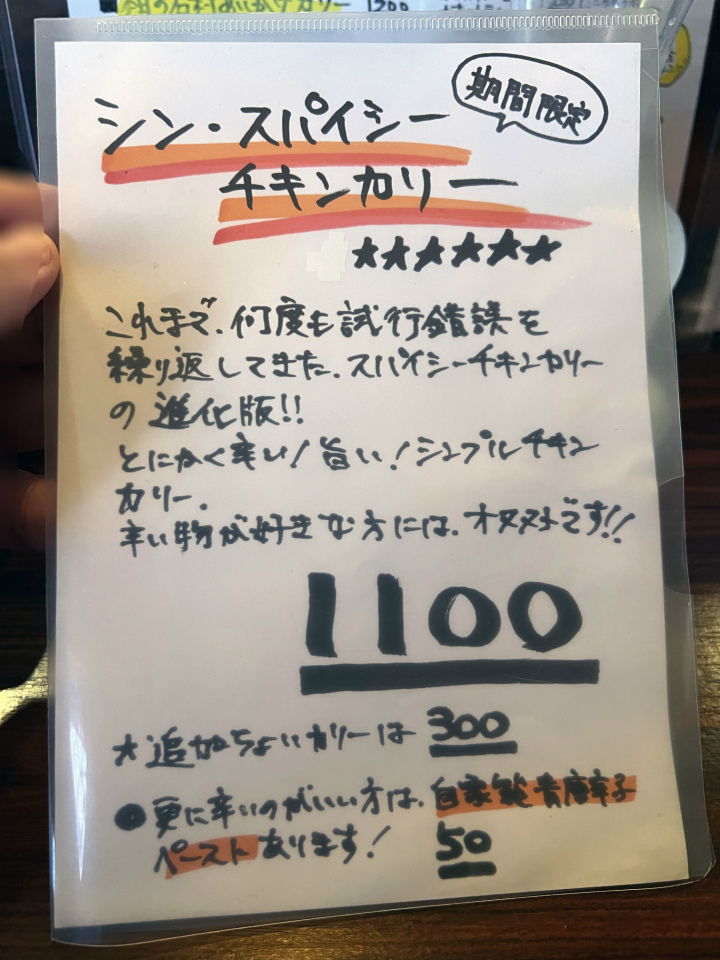 1200
期間限定
シン・スパイシー
チキンカリー
★★★★★★
これまで、何度も試行錯誤を
繰り返してきた、スパイシーチキンカリー
の進化版!!
とにかく辛い!旨い!シンプルチキン
カリー。
辛い物が好きな方には、オススメです!!
1100
★追加ちょいカリーは 300
●更に辛いのがいい方は、自家製青唐辛子
ペーストあります! 50